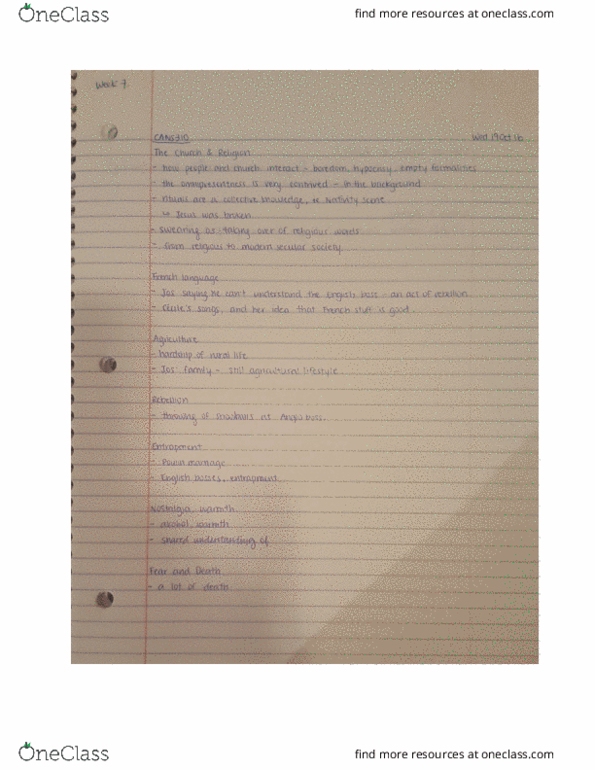 OneClass
find more resources at oneclass.com
Week 7
CANS310
Wed 19 Oct 16
The Church & Religion
- how people and church interact - boredom, hypocrisy, empty formalities
- the omnipresentness is very contrived - in the background
- rituals are a collective knowledge, Nativity scene
↳ Jesus was broken
- swearing as taking over of religious words
- from religious to modern secular society
French language
- Jos saying he can't understand the English boss - an act of rebellion
- Cecile's songs, and her idea that French stuff is good
Agriculture
- hardship of rural life
- Jos' family - still agricultural lifestyle
Rebellion
- throwing of snowballs at Anglo boss.
Entrapment
- marriage
- English bosses, entrapment
Nostalgia, warmth
- alcohol, warmth
- shared understanding of
Fear and Death
- a lot of death
OneClass
find more resources at oneclass.com